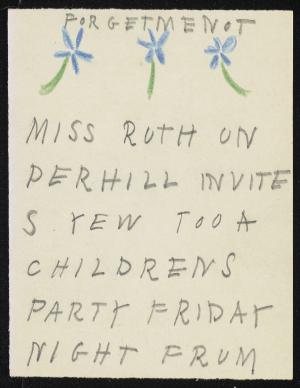 FORGETMENOT
MISS RUTH ON
DERHILL INVITE
S YEW TOO A
CHILDRENS
PARTY FRIDAY
NIGHT FRUM